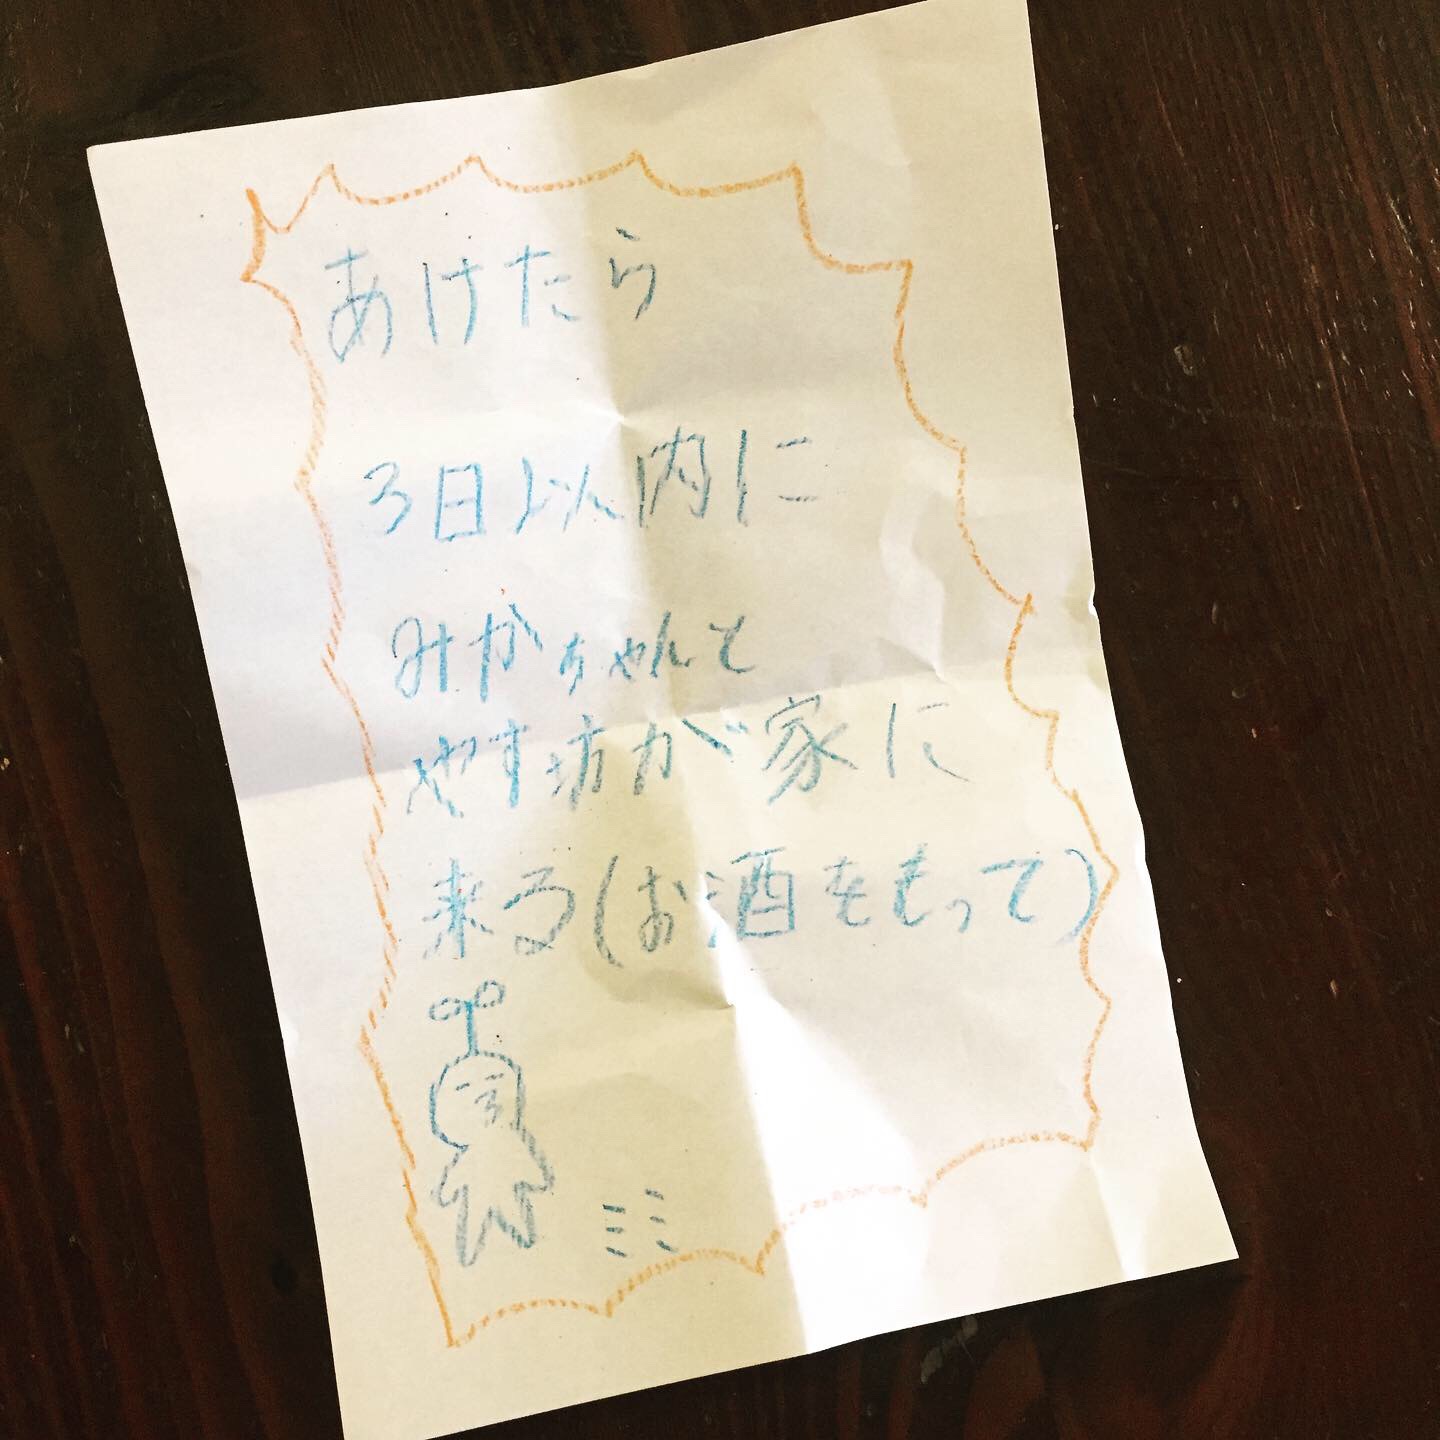 あけたら
3日以内に
みかちゃんと
やす坊が家に
来る(お酒をもって)
ミミ